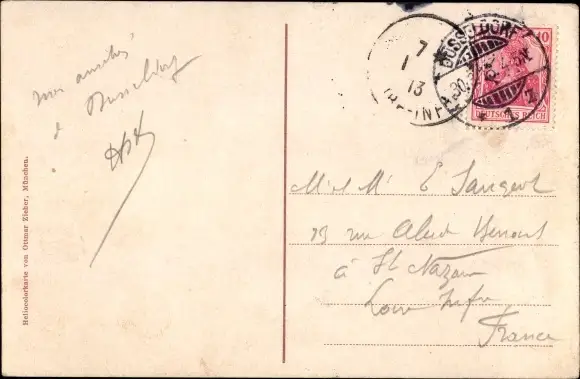 mes amitiés
de Dusseldorf
Heliocolorkarte von Ottmar Zieher, München.
7
1
13
DÜSSELDORF
30.
* 1 z
10
DEUTSCHES REICH
Mr et Me E Sangert
13 rue
à St Nazaire
Loire Infre
France